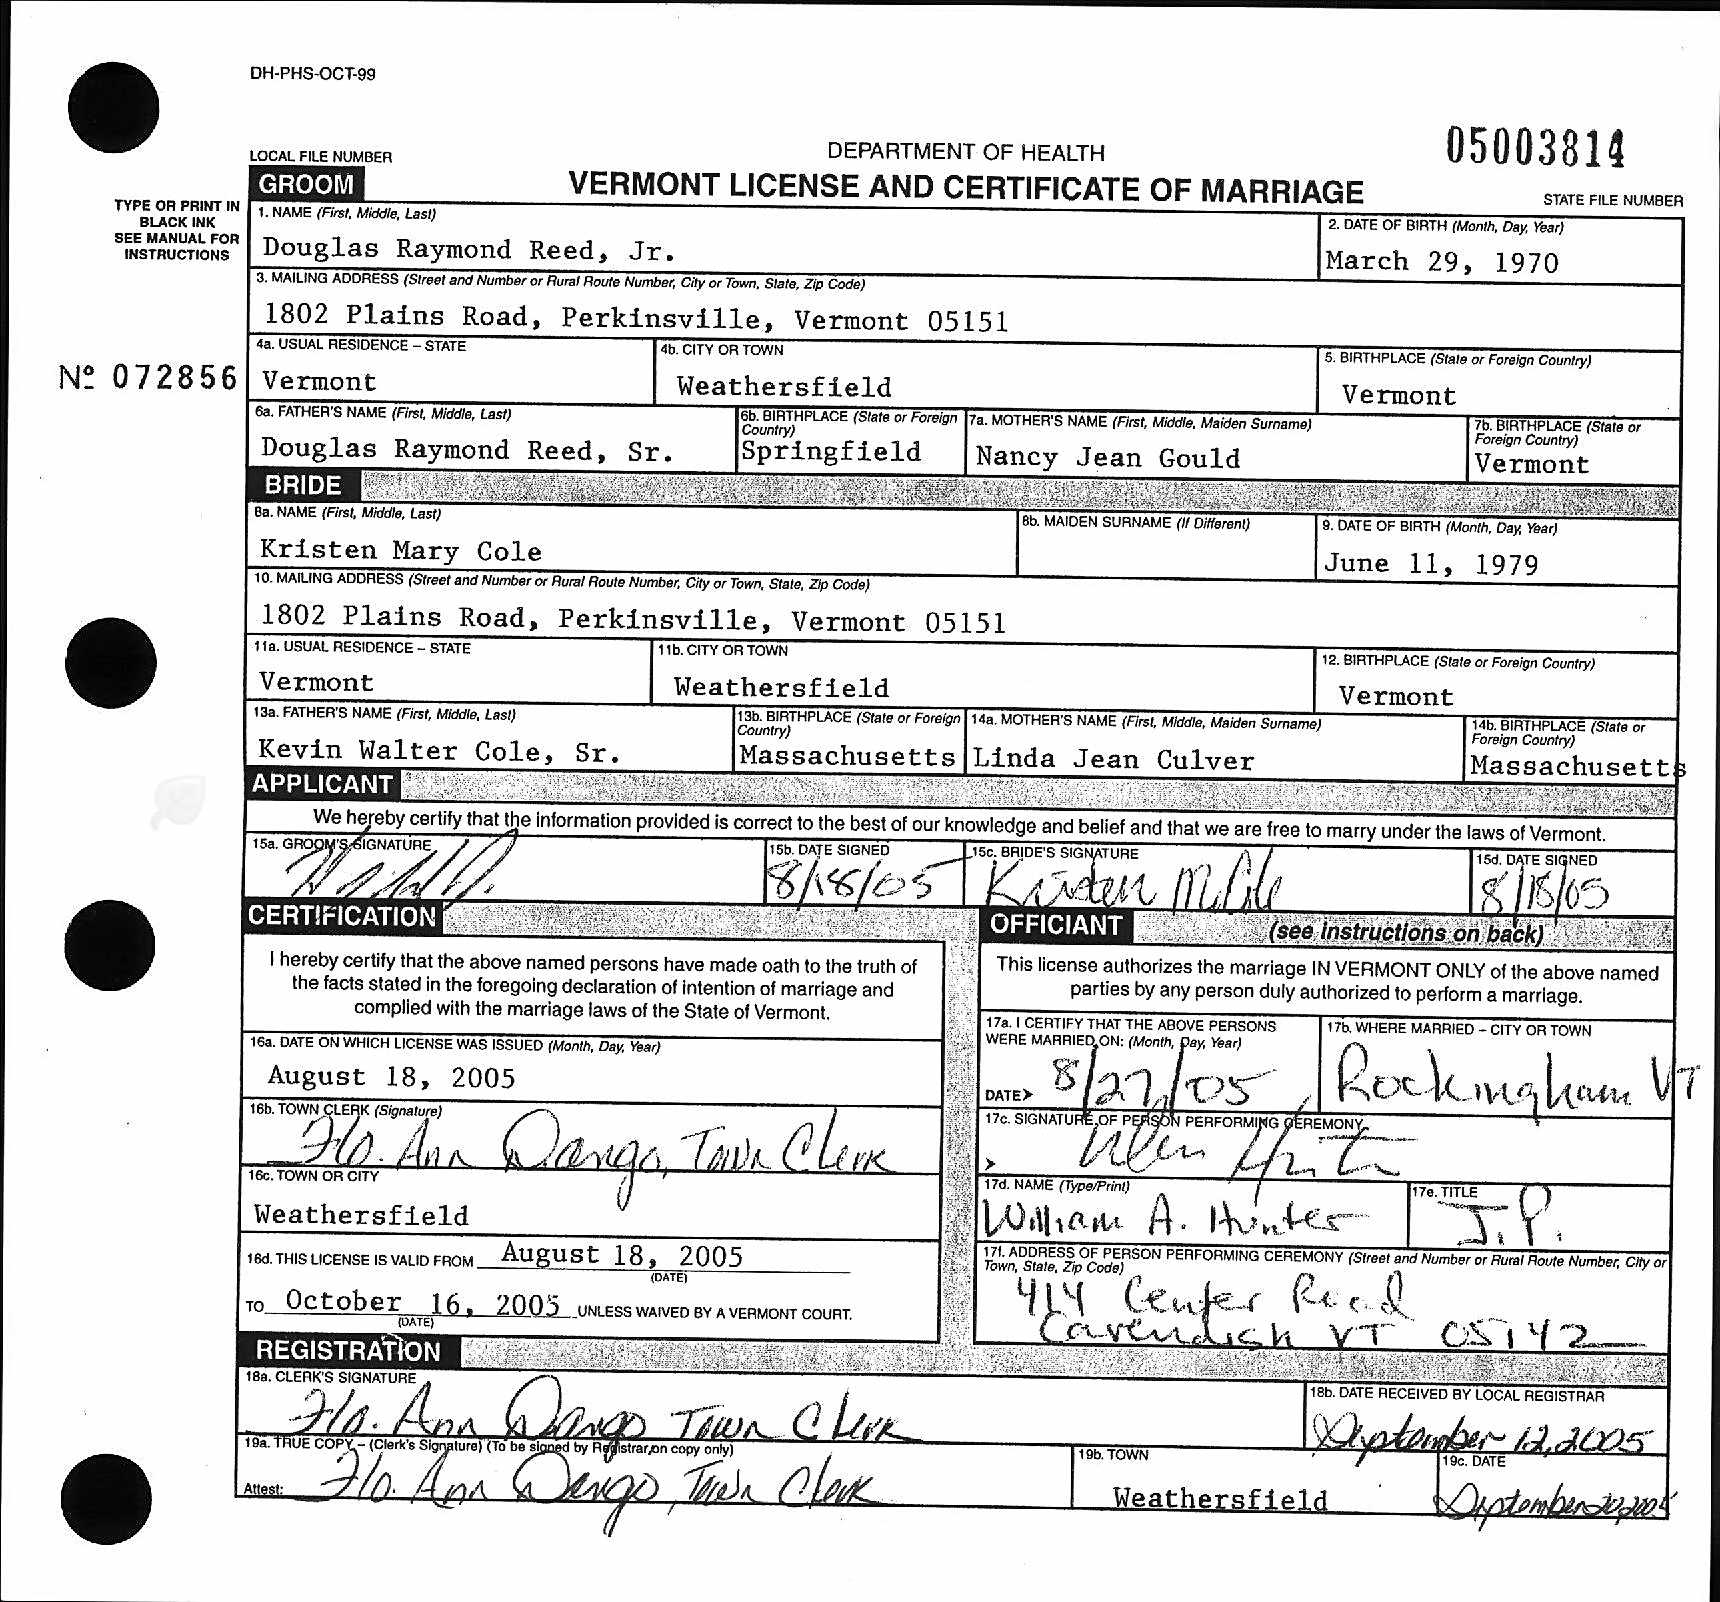 DH-PHS-OCT-99
05003814
DEPARTMENT OF HEALTH
LOCAL FILE NUMBER
GROOM
VERMONT LICENSE AND CERTIFICATE OF MARRIAGE
STATE FILE NUMBER
TYPE OR PRINT IN
BLACK INK
SEE MANUAL FOR
INSTRUCTIONS
1. NAME (First, Middle, Last)
2. DATE OF BIRTH (Month, Day, Year)
Douglas Raymond Reed, Jr.
March 29, 1970
3. MAILING ADDRESS (Street and Number or Rural Route Number, City or Town, State, Zip Code)
1802 Plains Road, Perkinsville, Vermont 05151
4a. USUAL RESIDENCE – STATE
4b. CITY OR TOWN
5. BIRTHPLACE (State or Foreign Country)
Nº 072856
Vermont
Weathersfield
Vermont
6a. FATHER'S NAME (First, Middle, Last)
6b. BIRTHPLACE (State or Foreign
Country)
7a. MOTHER'S NAME (First, Middle, Maiden Surname)
7b. BIRTHPLACE (State or
Foreign Country)
Douglas Raymond Reed, Sr.
Springfield
Nancy Jean Gould
Vermont
BRIDE
8a. NAME (First, Middle, Last)
8b. MAIDEN SURNAME (If Different)
9. DATE OF BIRTH (Month, Day, Year)
Kristen Mary Cole
June 11, 1979
10. MAILING ADDRESS (Street and Number or Rural Route Number, City or Town, State, Zip Code)
1802 Plains Road, Perkinsville, Vermont 05151
11a. USUAL RESIDENCE – STATE
11b. CITY OR TOWN
12. BIRTHPLACE (State or Foreign Country)
Vermont
Weathersfield
Vermont
13a. FATHER'S NAME (First, Middle, Last)
13b. BIRTHPLACE (State or Foreign
Country)
14a. MOTHER'S NAME (First, Middle, Maiden Surname)
14b. BIRTHPLACE (State or
Foreign Country)
Kevin Walter Cole, Sr.
Massachusetts
Linda Jean Culver
Massachusetts
APPLICANT
We hereby certify that the information provided is correct to the best of our knowledge and belief and that we are free to marry under the laws of Vermont.
15a. GROOM'S SIGNATURE
15b. DATE SIGNED
8/18/05
15c. BRIDE'S SIGNATURE
Kristen M. Cole
15d. DATE SIGNED
8/18/05
CERTIFICATION
I hereby certify that the above named persons have made oath to the truth of
the facts stated in the foregoing declaration of intention of marriage and
complied with the marriage laws of the State of Vermont.
16a. DATE ON WHICH LICENSE WAS ISSUED (Month, Day, Year)
August 18, 2005
16b. TOWN CLERK (Signature)
Flo. Ann Dango, Town Clerk
16c. TOWN OR CITY
Weathersfield
16d. THIS LICENSE IS VALID FROM August 18, 2005
(DATE)
TO October 16, 2005 UNLESS WAIVED BY A VERMONT COURT.
(DATE)
OFFICIANT
(see instructions on back)
This license authorizes the marriage IN VERMONT ONLY of the above named
parties by any person duly authorized to perform a marriage.
17a. I CERTIFY THAT THE ABOVE PERSONS
WERE MARRIED ON: (Month, Day, Year)
DATE> 8/27/05
17b. WHERE MARRIED – CITY OR TOWN
Rockingham VT
17c. SIGNATURE OF PERSON PERFORMING CEREMONY
>
17d. NAME (Type/Print)
William A. Hunter
17e. TITLE
J.P.
17f. ADDRESS OF PERSON PERFORMING CEREMONY (Street and Number or Rural Route Number, City or
Town, State, Zip Code)
414 Center Road
Cavendish VT 05142
REGISTRATION
18a. CLERK'S SIGNATURE
Flo. Ann Dango Town Clerk
18b. DATE RECEIVED BY LOCAL REGISTRAR
September 12, 2005
19a. TRUE COPY – (Clerk's Signature) (To be signed by Registrar on copy only)
Attest: Flo. Ann Dango, Town Clerk
19b. TOWN
Weathersfield
19c. DATE
September 20, 2005